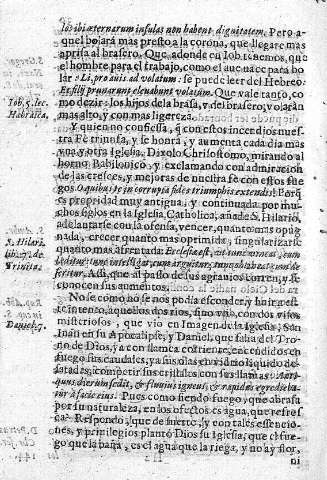 Iob: ibi æternarum insulas non habent dignitatem. Pero a-
quel bolarà mas presto a la corona, que llegare mas
aprisa al brasero. Que adonde en Iob tenemos, que
el hombre para el trabajo, como el aue nace para bo
lar: & auis ad volatum: se puede leer del Hebreo:
Iob. 5. lec.
Hebraica.
Et filij prunarum eleuabunt volatum. Que vale tanto, co
mo dezir: los hijos de la brasa, y del brasero, volaràn
mas alto, y con mas ligereza.
Y quien no confiessa, q con estos incendios nues
tra Fè triunfa, y se honra, y aumenta cada dia mas
vna y otra Iglesia. Dixolo Chrisostomo, mirando al
horno Babilonico, y exclamando con admiracion
de las creces, y mejoras de nuestra fe con estos fue
gos. O quibus te incorrupta fides triumphis extendis! Porq
es propriedad muy antigua, y continuada por mu-
chos siglos en la Iglesia Catholica, añade S. Hilario,
adelantarse con la ofensa, vencer, quanto mas opug
nada, crecer, quanto mas oprimida, singularizarse
S. Hilari.
lib. 7. de
Trinita.
quanto mas afrentada:
Assi, que al passo de los agrauios corren, y se
conocen sus aumentos.
No sè como no se nos podia esconder, y huir en es
te intento, aquellos dos rios, sino viuo, con dos visos
misteriosos, que vio en Imagen de la Iglesia, San
Iuan en su Apocalipsi, y Daniel, que salia del Tro-
Daniel. 7.
no de Dios, ya con llamas corriente, encendidos en
fuego sus caudales, ya sus olas en vidrio liquido de-
satadas, competir sus cristales con sus llamas. Anti-
quus dierum sedit, & fluuius igneus, & rapidus egrediebа-
tur à facie eius. Pues como siendo fuego, que abrasa
por su naturaleza, en los efectos es agua, que refres
ca? Respondo, que de suerte, y con tales essencio-
nes, y priuilegios plantò Dios su Iglesia, que el fue-
go que la baña, es el agua que la riega, y no ay fra,
ni